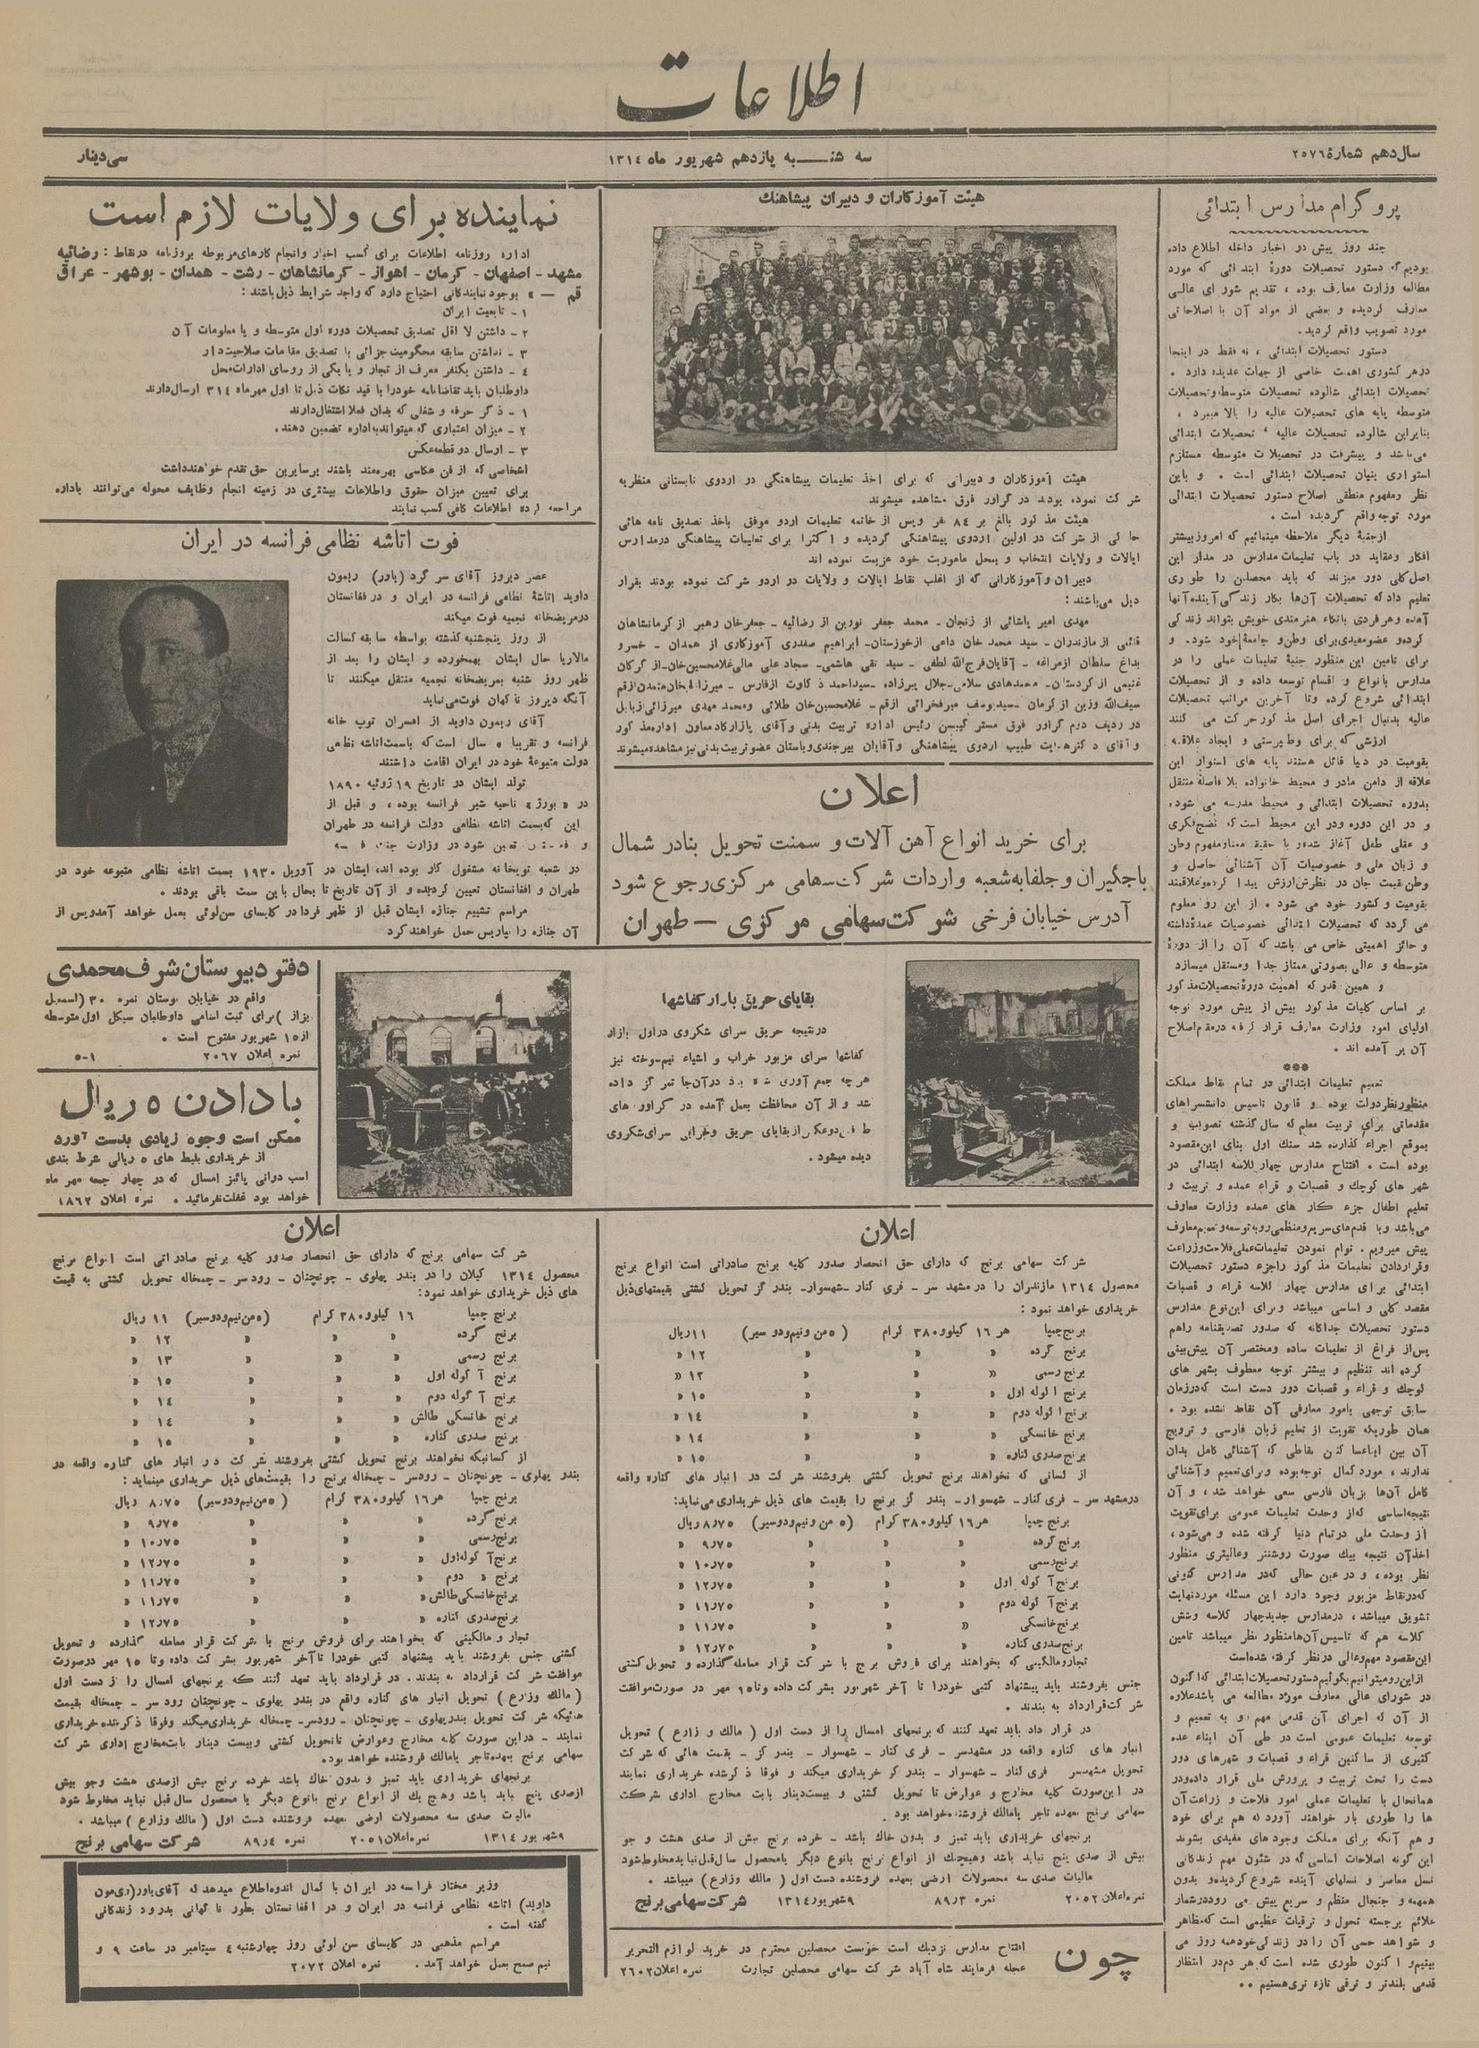 اطلاعات
سال دهم شمارهٔ ۲۵۷۶
سه شنبه یازدهم شهریور ماه ۱۳۱٤
سی دینار
پروگرام مدارس ابتدائی
چند روز پیش در اخبار داخله اطلاع داده
بودیم که دستور تحصیلات دورهٔ ابتدائی که مورد
مطالعه وزارت معارف بوده ، تقدیم شورای عالی
معارف گردیده و بعضی از مواد آن با اصلاحاتی
مورد تصویب واقع گردید .
دستور تحصیلات ابتدائی ، نه فقط در اینجا
در هر کشوری اهمیت خاصی از جهات عدیده دارد .
تحصیلات ابتدائی شالوده تحصیلات متوسطه و تحصیلات
متوسطه پایه های تحصیلات عالیه را بالا میبرد ،
بنابراین شالوده تحصیلات عالیه ، تحصیلات ابتدائی
می‌باشد و پیشرفت در تحصیلات متوسطه مستلزم
استواری بنیان تحصیلات ابتدائی است . و باین
نظر ومفهوم منطقی اصلاح دستور تحصیلات ابتدائی
مورد توجه واقع گردیده است .
ازجنبهٔ دیگر ملاحظه مینمائیم که امروز بیشتر
افکار و عقاید در باب تعلیمات مدارس در مدار این
اصل کلی دور میزند که باید محصلین را طوری
تعلیم داد که تحصیلات آن‌ها بکار زندگی آینده آنها
آمده و هر فردی باتکاء هنرمندی خویش بتواند زندگی
کرده و عضو مفیدی برای وطن و جامعهٔ خود شود . و
برای تامین این منظور جنبهٔ تعلیمات عملی را در
مدارس بانواع و اقسام توسعه داده و از تحصیلات
ابتدائی شروع کرده وتا آخرین مراتب تحصیلات
عالیه بدنبال اجرای اصل مذکور حرکت می کنند
ارزشی که برای وطن پرستی و ایجاد علاقه
بقومیت در دنیا قائل هستند پایه های استوار این
علاقه از دامن مادر و محیط خانواده بلا فاصله منتقل
بدوره تحصیلات ابتدائی و محیط مدرسه می شود ،
و در این دوره ودر این محیط است که نضج فکری
و عقلی طفل آغاز شده و با حقیقت معنا و مفهوم وطن
و زبان ملی و خصوصیات آن آشنائی حاصل و
وطن قیمت جان در نظرش ارزش پیدا کرده و علاقمند
بقومیت و کشور خود می شود . از این رو معلوم
می گردد که تحصیلات ابتدائی خصوصیات عمده داشته
و حائز اهمیتی خاص می باشد که آن را از دورهٔ
متوسطه و عالی بصورتی ممتاز جدا و مستقل میسازد
و همین قدر که اهمیت دورهٔ تحصیلات مذکور
بر اساس کلیات مذکور بیش از پیش مورد توجه
اولیای امور وزارت معارف قرار گرفته درمقام اصلاح
آن بر آمده اند .
***
تعمیم تعلیمات ابتدائی در تمام نقاط مملکت
منظور نظر دولت بوده و قانون تاسیس دانشسراهای
مقدماتی برای تربیت معلم که سال گذشته تصویب و
بموقع اجراء گذارده شد سنک اول بنای این مقصود
بوده است . افتتاح مدارس چهار کلاسه ابتدائی در
شهر های کوچك و قصبات و قراء عمده و تربیت و
تعلیم اطفال جزء کار های عمده وزارت معارف
می‌باشد و با قدم‌های سریع و منظمی رو به توسعه و تعمیم معارف
پیش میرویم . توام نمودن تعلیمات عملی فلاحت و زراعت
و قراردادن تعلیمات مذکور راجزء دستور تحصیلات
ابتدائی برای مدارس چهار کلاسه قراء و قصبات
مقصد کلی و اساسی میباشد و برای این نوع مدارس
دستور تحصیلات جداگانه که صدور تصدیقنامه راهم
پس از فراغ از تعلیمات ساده ومختصر آن پیش بینی
کرده اند تنظیم و بیشتر توجه معطوف بشهر های
کوچك و قراء و قصبات دور دست است که درزمان
سابق توجهی بامور معارفی آن نقاط نشده بود .
همان طوریکه تقویت از تعلیم زبان فارسی و ترویج
آن بین اینگونه ساکنین نقاطی که آشنائی کامل بدان
ندارند ، مورد کمال توجه بوده و برای تعمیم و آشنائی
کامل آن‌ها بزبان فارسی سعی خواهد شد ، و آن
نتیجه اساسی که از وحدت تعلیمات عمومی برای تقویت
از وحدت ملی در تمام دنیا گرفته شده و می‌شود ،
اخذ آن نتیجه بیك صورت روشنتر و عالیتری منظور
نظر بوده ، و در عین حالی که در مدارس کنونی
که در نقاط مزبور وجود دارد این مسئله مورد نهایت
تشویق میباشد ، در مدارس جدید چهار کلاسه وشش
کلاسه هم که تاسیس آن‌ها منظور نظر میباشد تامین
این مقصود مهم و عالی در نظر گرفته شده است
از این رو میتوانیم بگوئیم دستور تحصیلات ابتدائی که اکنون
در شورای عالی معارف مورد مطالعه می باشد علاوه
از آن که اجرای آن قدمی مهم رو به تعمیم و
توسعه تعلیمات عمومی است در طی آن ابناء عده
کثیری از ساکنین قراء و قصبات و شهرهای دور
دست را تحت تربیت و پرورش ملی قرار داده و در
همانحال با تعلیمات عملی امور فلاحت و زراعت آن
ها را طوری بار خواهند آورد که هم برای خود
و هم آنکه برای مملکت وجود های مفیدی بشوند
این گونه اصلاحات اساسی که در شئون مهم زندگانی
نسل معاصر و نسلهای آینده شروع گردیده و بدون
همهمه و جنجال منظم و سریع پیش می رود در شمار
علائم برجسته تحول و ترقیات عظیمی است که مظاهر
و شواهد حسی آن را در زندگی خود همه روز می
بینیم و اکنون طوری شده است که هر دم در انتظار
قدمی بلندتر و ترقی تازه تری هستیم . .
هیئت آموزکاران و دبیران پیشاهنك
هیئت آموزکاران و دبیرانی که برای اخذ تعلیمات پیشاهنگی در اردوی تابستانی منظریه
شرکت نموده بودند در گراور فوق مشاهده میشوند
هیئت مذکور بالغ بر ۸٤ نفر وپس از خاتمه تعلیمات اردو موفق باخذ تصدیق نامه هائی
حاکی از شرکت در اولین اردوی پیشاهنگی گردیده و اکثرا برای تعلیمات پیشاهنگی درمدارس
ایالات و ولایات انتخاب و بمحل ماموریت خود عزیمت نموده اند
دبیران و آموزکارانی که از اغلب نقاط ایالات و ولایات در اردو شرکت نموده بودند بقرار
ذیل می‌باشند :
مهدی امیر پاشائی از زنجان – محمد جعفر نوربن از رضائیه – جعفرخان رهبر از کرمانشاهان
قائمی از مازندران – سید محمد خان داعی از خوزستان – ابراهیم صفدری آموزکاری از همدان – خسرو
بداغ سلطان ازمراغه – آقایان فرج‌الله لطفی – سید تقی هاشمی – سجاد علی مالی غلامحسین خان – از کرکان
غنیمی از کردستان – محمد هادی سلامی – جلال پیرزاده – سید احمد ذکاوت ازفارس –
سیف‌الله وزین از کرمان – سید یوسف میرفخرائی ازقم – غلامحسین خان طلائی و محمد مهدی میرزائی ازبابل
در ردیف دوم گراور فوق مستر گیبسن رئیس اداره تربیت بدنی و آقای بازارکاد معاون اداره مذکور
و آقای دکتر هدایت طبیب اردوی پیشاهنگی و آقایان بیرجندی و باستان عضو تربیت بدنی نیز مشاهده میشوند
اعلان
برای خرید انواع آهن آلات و سمنت تحویل بنادر شمال
باجگیران و جلفا به شعبه واردات شرکت سهامی مرکزی رجوع شود
آدرس خیابان فرخی شرکت سهامی مرکزی – طهران
نماینده برای ولایات لازم است
اداره روزنامه اطلاعات برای کسب اخبار وانجام کارهای مربوطه بروزنامه درنقاط : رضائیه
مشهد – اصفهان – کرمان – اهواز – کرمانشاهان – رشت – همدان – بوشهر – عراق
قم – بوجود نمایندگانی احتیاج دارد که واجد شرایط ذیل باشند :
۱ – تابعیت ایران
۲ – داشتن لا اقل تصدیق تحصیلات دوره اول متوسطه و یا معلومات آن
۳ – نداشتن سابقه محکومیت جزائی با تصدیق مقامات صلاحیت دار
٤ – داشتن یکنفر معرف از تجار و یا یکی از روسای ادارات محل
داوطلبان باید تقاضانامه خودرا با قید نکات ذیل تا اول مهر ماه ۳۱٤ ارسال دارند
۱ – ذکر حرفه و شغلی که بدان فعلا اشتغال دارند
۲ – میزان اعتباری که میتوانند به اداره تضمین دهند .
۳ – ارسال دو قطعه عکس
اشخاصی که از فن عکاسی بهره‌مند باشند برسایرین حق تقدم خواهند داشت
برای تعیین میزان حقوق و اطلاعات بیشتری در زمینه انجام وظایف محوله می‌توانند باداره
مراجعه کرده اطلاعات کافی کسب نمایند
فوت اتاشه نظامی فرانسه در ایران
عصر دیروز آقای سرگرد (یاور) ریمون
داوید اتاشهٔ نظامی فرانسه در ایران و در افغانستان
درمریضخانه نجمیه فوت میکند
از روز پنجشنبه گذشته بواسطه سابقه کسالت
مالاریا حال ایشان بهمخورده و ایشان را بعد از
ظهر روز شنبه بمریضخانه نجمیه منتقل میکنند تا
آنکه دیروز ناگهان فوت می‌نماید
آقای ریمون داوید از افسران توپ خانه
فرانسه و تقریبا ۵ سال است که باسمت اتاشه نظامی
دولت متبوعهٔ خود در ایران اقامت داشتند
تولد ایشان در تاریخ ۱۹ ژوئیه ۱۸۹۰
در « بورژ » ناحیه شر فرانسه بوده ، و قبل از
این که بسمت اتاشه نظامی دولت فرانسه در طهران
تعیین شود در وزارت جنگ فرانسه
در شعبه توپخانه مشغول کار بوده اند ، ایشان در آوریل ۱۹۳۰ بسمت اتاشهٔ نظامی متبوعه خود در
طهران و افغانستان تعیین گردیده و از آن تاریخ تا بحال باین سمت باقی بودند .
مراسم تشییع جنازه ایشان قبل از ظهر فردا در کلیسای سن لوئی بعمل خواهد آمد و پس از
آن جنازه را بپاریس حمل خواهند کرد
دفتر دبیرستان شرف محمدی
واقع در خیابان بوستان نمره ۳۰ (اسمعیل
بزاز ) برای ثبت اسامی داوطلبان سیکل اول متوسطه
از ۱۵ شهریور مفتوح است .
نمره اعلان ۲۰۶۷ ۱-۵
با دادن ۵ ریال
ممکن است وجوه زیادی بدست آورد
از خریداری بلیط های ۵ ریالی شرط بندی
اسب دوانی پائیز امسال که در چهار جمعه مهر ماه
خواهد بود غفلت نفرمائید . نمره اعلان ۱۸۶۲
بقایای حریق بازار کفاشها
در نتیجه حریق سرای شکروی در اول بازار
کفاشها سرای مزبور خراب و اشیاء نیم سوخته نیز
هر چه جمع آوری شده بود در آن جا تمرکز داده
شد و از آن محافظت بعمل آمده در گراور های
طرفین دو عکس از بقایای حریق و خرابی سرای شکروی
دیده میشود .
اعلان
شرکت سهامی برنج که دارای حق انحصار صدور کلیه برنج صادراتی است انواع برنج
محصول ۱۳۱٤ مازندران را در مشهد سر – فری کنار – شهسوار – بندر گز تحویل کشتی بقیمتهای ذیل
خریداری خواهد نمود :
برنج چمپا هر ۱۶ کیلو و ۳۸۰ گرام (۵ من و نیم و دو سیر) ۱۱ ریال
برنج گرده » » » ۱۲ »
برنج رسمی » » » ۱۳ »
برنج آکوله اول » » » ۱۵ »
برنج آکوله دوم » » » ۱٤ »
برنج خانسکی » » » ۱٤ »
برنج صدری کناره » » » ۱۵ »
از کسانی که نخواهند برنج تحویل کشتی بفروشند شرکت در انبار های کناره واقعه
درمشهد سر – فری کنار – شهسوار – بندر گز برنج را بقیمت های ذیل خریداری می‌نماید :
برنج چمپا هر ۱۶ کیلو و ۳۸۰ گرام (۵ من و نیم و دو سیر) ۸٫۷۵ ریال
برنج گرده » » » ۹٫۷۵ »
برنج رسمی » » » ۱۰٫۷۵ »
برنج آکوله اول » » » ۱۲٫۷۵ »
برنج آکوله دوم » » » ۱۱٫۷۵ »
برنج خانسکی » » » ۱۱٫۷۵ »
برنج صدری کناره » » » ۱۲٫۷۵ »
تجار و مالکینی که بخواهند برای فروش برنج با شرکت قرار معامله گذارده و تحویل کشتی
جنس بفروشند باید پیشنهاد کتبی خودرا تا آخر شهریور بشرکت داده و تا ۱۵ مهر در صورت موافقت
شرکت قرارداد به بندند .
در قرار داد باید تعهد کنند که برنجهای امسال را از دست اول ( مالك و زارع ) تحویل
انبار های کناره واقعه در مشهدسر – فری کنار – شهسوار – بندر گز – بقیمت هائی که شرکت
تحویل مشهدسر فری کنار – شهسوار – بندر گز خریداری میکند و فوقا ذکر شده خریداری نمایند
در این صورت کلیه مخارج و عوارض تا تحویل کشتی و بیست دینار بابت مخارج اداری شرکت
سهامی برنج بعهده تاجر یا مالك فروشنده خواهد بود .
برنجهای خریداری باید تمیز و بدون خاك باشد – خرده برنج بیش از صدی هشت و جو
بیش از صدی پنج نباید باشد وهیچیك از انواع برنج بانوع دیگر یا محصول سال قبل نباید مخلوط شود
مالیات صدی سه محصولات ارضی بعهده فروشنده دست اول ( مالك وزارع ) میباشد .
نمره اعلان ۲۰۵۲ نمره ۸۹٫۳ ۹ شهریور ۱۳۱٤ شرکت سهامی برنج
اعلان
شرکت سهامی برنج که دارای حق انحصار صدور کلیه برنج صادراتی است انواع برنج
محصول ۱۳۱٤ گیلان را در بندر پهلوی – چونچنان – رودسر – چمخاله تحویل کشتی به قیمت
های ذیل خریداری خواهد نمود :
برنج چمپا ۱۶ کیلو و ۳۸۰ گرام (۵ من نیم و دو سیر) ۱۱ ریال
برنج گرده » » » ۱۲ »
برنج رسمی » » » ۱۳ »
برنج آکوله اول » » » ۱۵ »
برنج آکوله دوم » » » ۱٤ »
برنج خانسکی طالش » » » ۱٤ »
برنج صدری کناره » » » ۱۵ »
از کسانیکه نخواهند برنج تحویل کشتی بفروشند شرکت در انبار های کناره واقعه در
بندر پهلوی – چونچنان – رودسر – چمخاله برنج را بقیمت‌های ذیل خریداری مینماید :
برنج چمپا هر ۱۶ کیلو و ۳۸۰ گرام (۵ من نیم و دو سیر) ۸٫۷۵ ریال
برنج گرده » » » ۹٫۷۵ »
برنج رسمی » » » ۱۰٫۷۵ »
برنج آکوله اول » » » ۱۲٫۷۵ »
برنج » دوم » » » ۱۱٫۷۵ »
برنج خانسکی طالش » » » ۱۱٫۷۵ »
برنج صدری کناره » » » ۱۲٫۷۵ »
تجار و مالکینی که بخواهند برای فروش برنج با شرکت قرار معامله گذارده و تحویل
کشتی جنس بفروشند باید پیشنهاد کتبی خودرا تا آخر شهریور بشرکت داده و تا ۱۵ مهر درصورت
موافقت شرکت قرارداد به بندند . در قرارداد باید تعهد کنند که برنجهای امسال را از دست اول
( مالك وزارع ) تحویل انبار های کناره واقع در بندر پهلوی – چونچنان رودسر – چمخاله بقیمت
هائیکه شرکت تحویل بندر پهلوی – چونچنان – رودسر – چمخاله خریداری میکند وفوقا ذکر شده خریداری
نمایند – در این صورت کلیه مخارج وعوارض تا تحویل کشتی و بیست دینار بابت مخارج اداری شرکت
سهامی برنج بعهده تاجر یا مالك فروشنده خواهد بود .
برنجهای خریداری باید تمیز و بدون خاك باشد خرده برنج بیش از صدی هشت وجو بیش
ازصدی پنج نباید باشد وهیچ یك از انواع برنج بانوع دیگر یا محصول سال قبل نباید مخلوط شود
مالیات صدی سه محصولات ارضی بعهده فروشنده دست اول ( مالك وزارع ) میباشد .
۹ شهریور ۱۳۱٤ نمره اعلان ۲۰۵۱ نمره ۸۹٫٤ شرکت سهامی برنج
چون
افتتاح مدارس نزدیك است خوبست محصلین محترم در خرید لوازم التحریر
عجله فرمایند شاه آباد شرکت سهامی محصلین تجارت نمره اعلان ۲۶۰۲
وزیر مختار فرانسه در ایران با کمال اندوه اطلاع میدهد که آقای یاور (ریمون
داوید) اتاشه نظامی فرانسه در ایران و در افغانستان بطور ناگهانی بدرود زندگانی
گفته است .
مراسم مذهبی در کلیسای سن لوئی روز چهارشنبه ٤ سپتامبر در ساعت ۹ و
نیم صبح بعمل خواهد آمد . نمره اعلان ۲۰۷۲